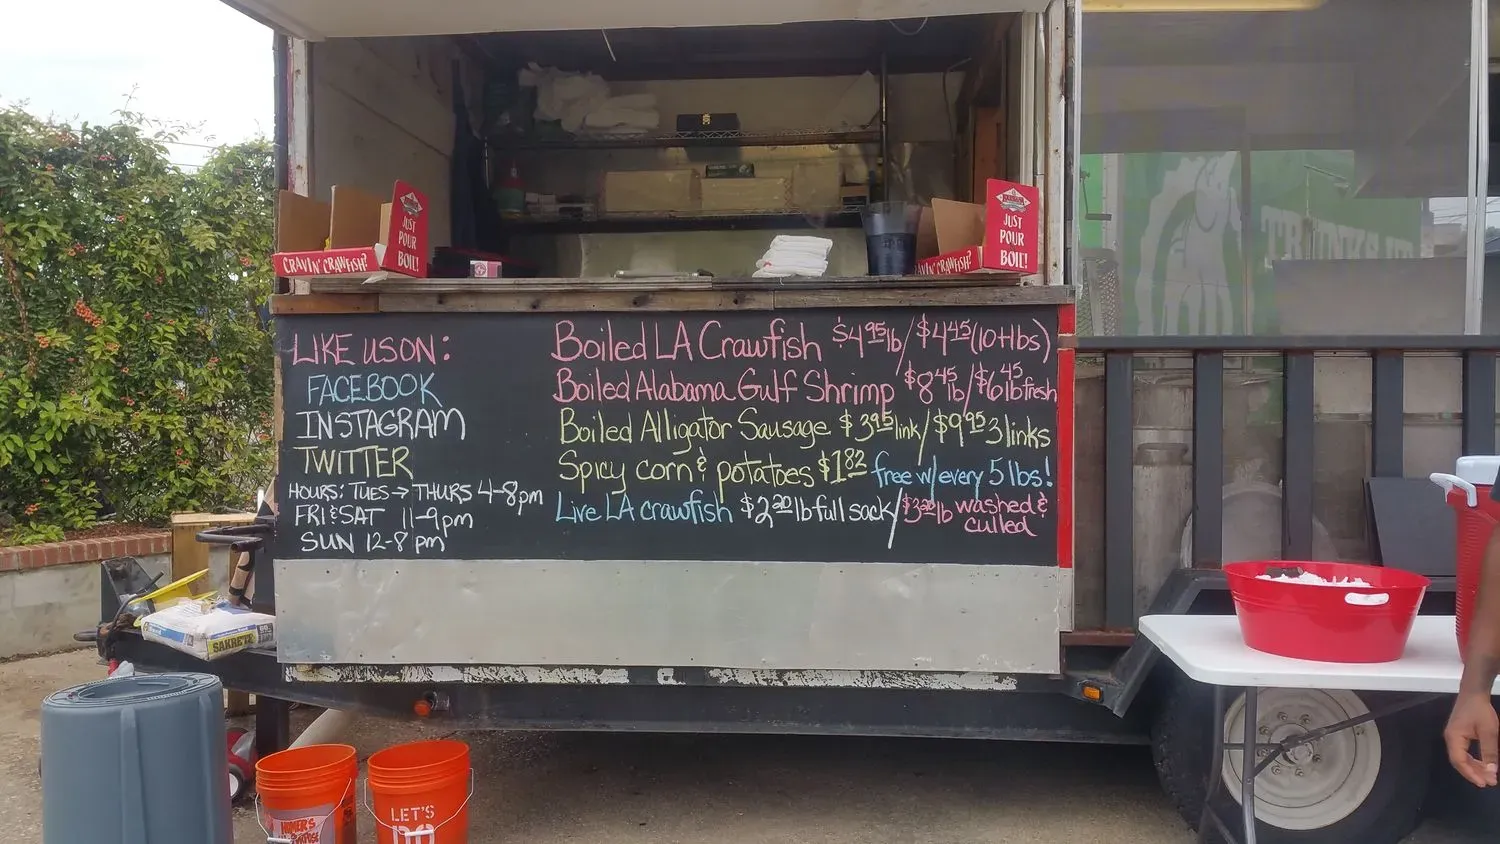 CRAVIN' CRAWFISH?
JUST
POUR
BOIL!
CRAVIN' CRAWFISH?
JUST
POUR
BOIL!
LIKE US ON:
FACEBOOK
INSTAGRAM
TWITTER
HOURS: TUES → THURS 4-8pm
FRI & SAT 11-9pm
SUN 12-8 pm
Boiled LA Crawfish $4.95 lb/$4.45 (10+lbs)
Boiled Alabama Gulf Shrimp $8.45 lb/$6.45 lb fresh
Boiled Alligator Sausage $3.95 link/$9.95 3 links
Spicy corn & potatoes $1.82 free w/every 5 lbs!
Live LA crawfish $2.20 lb full sack/$3.20 lb washed & culled
SAKRETE
LET'S
DO
HOMER'S